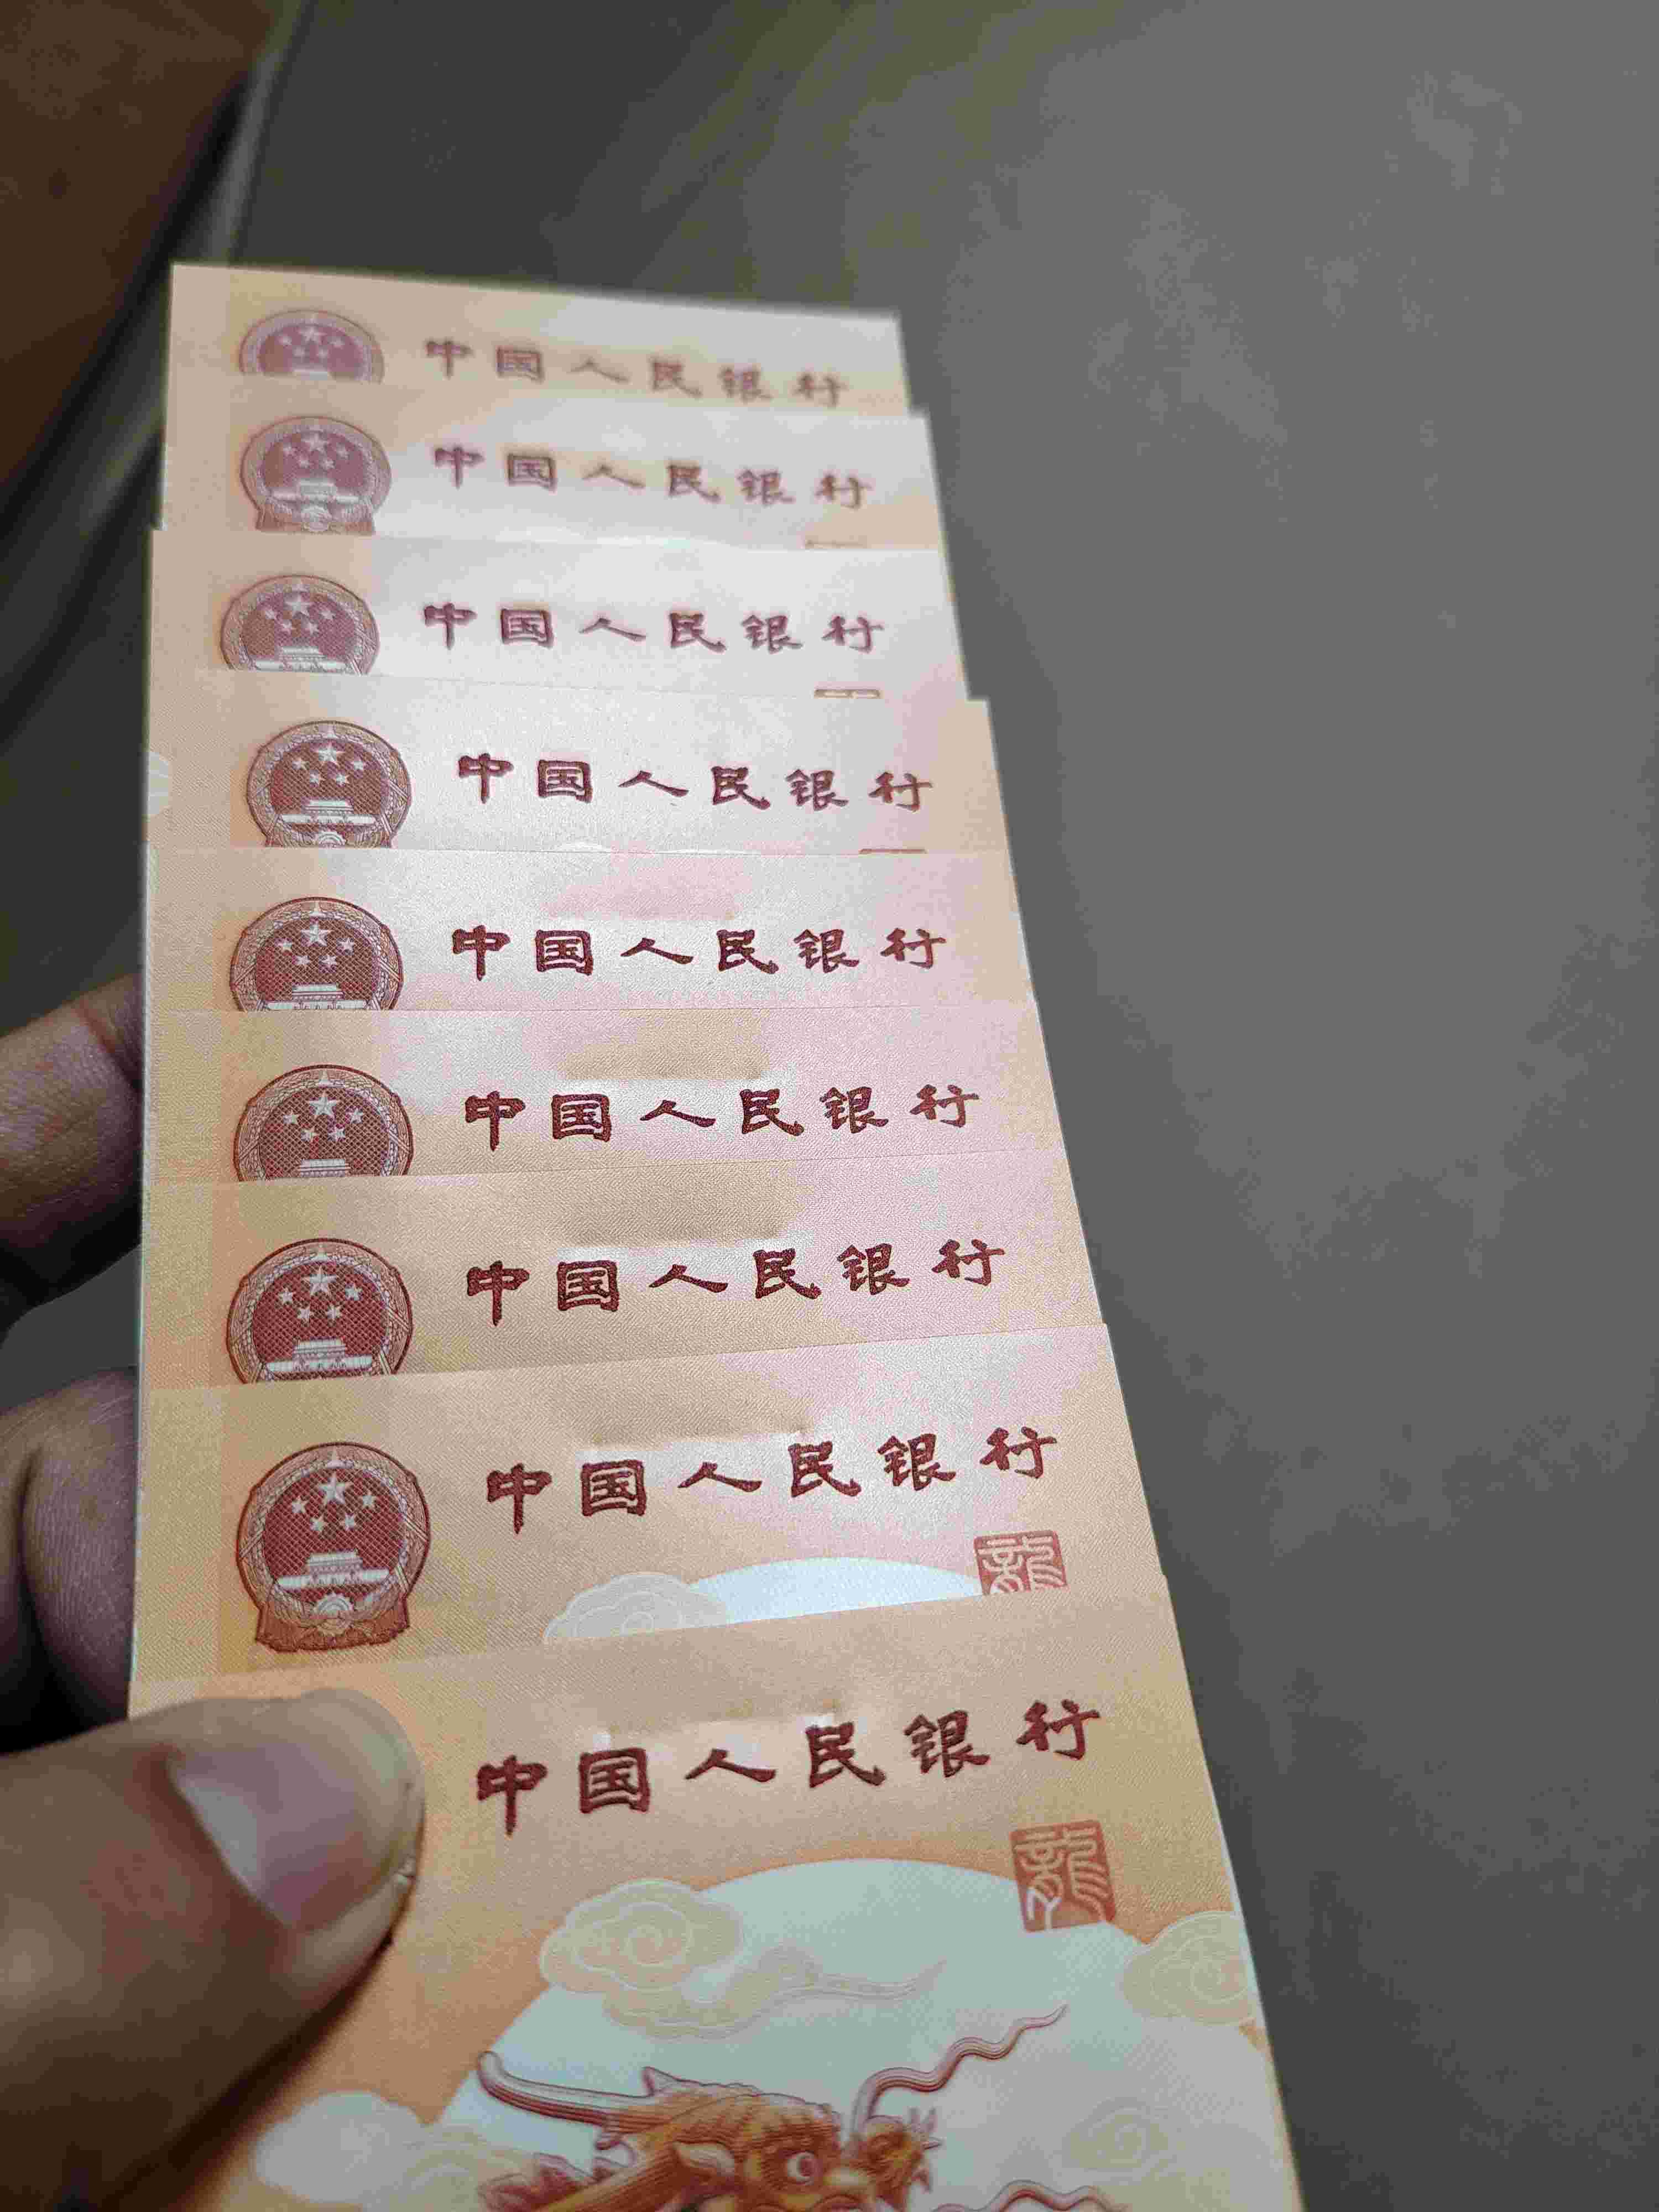 中国人民银行
中国人民银行
中国人民银行
中国人民银行
中国人民银行
中国人民银行
中国人民银行
中国人民银行
龍
中国人民银行
龍